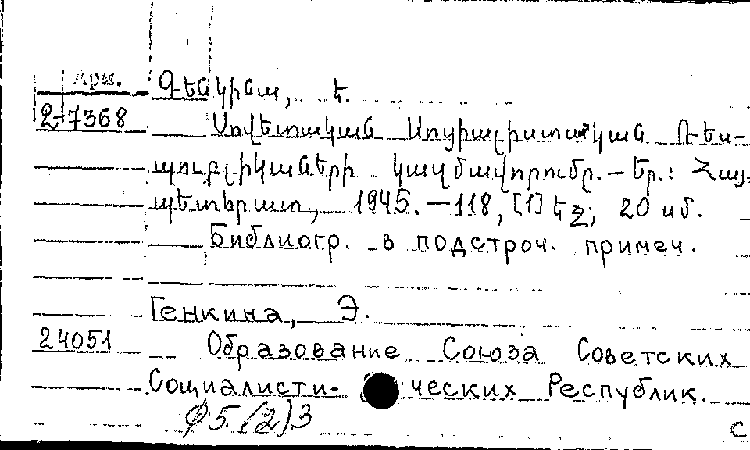 Арм.
Գենկինա, Է.
2-7368
Սովետական Սոցիալիստական Ռես-
պուբլիկաների կազմավորումը. – Եր.: Հայ-
պետհրատ, 1945. – 118, [1] էջ, 20 սմ.
Библиогр. в подстроч. примеч.
Генкина, Э.
24051
Образование Союза Советских
Социалисти- ческих Республик.
С